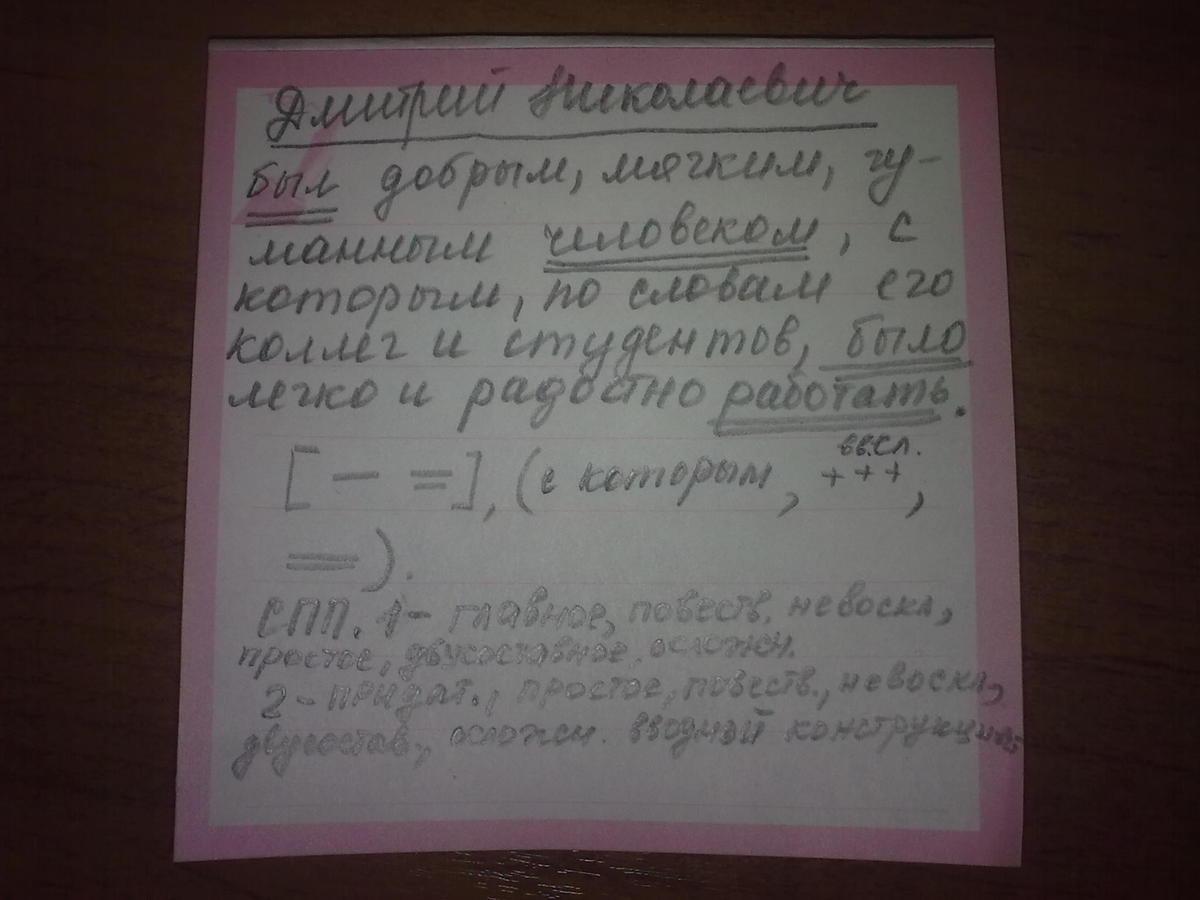 Дмитрий Николаевич
был добрым, мягким, гу-
манным человеком, с
которым, по словам его
коллег и студентов, было
легко и радостно работать.
вв.сл.
[ — = ], (с которым, +++,
= ).
СПП. 1- главное, повеств. невоскл,
простое, двусоставное, осложн.
2- придат., простое, повеств., невоскл,
двусостав., осложн. вводной конструкцией